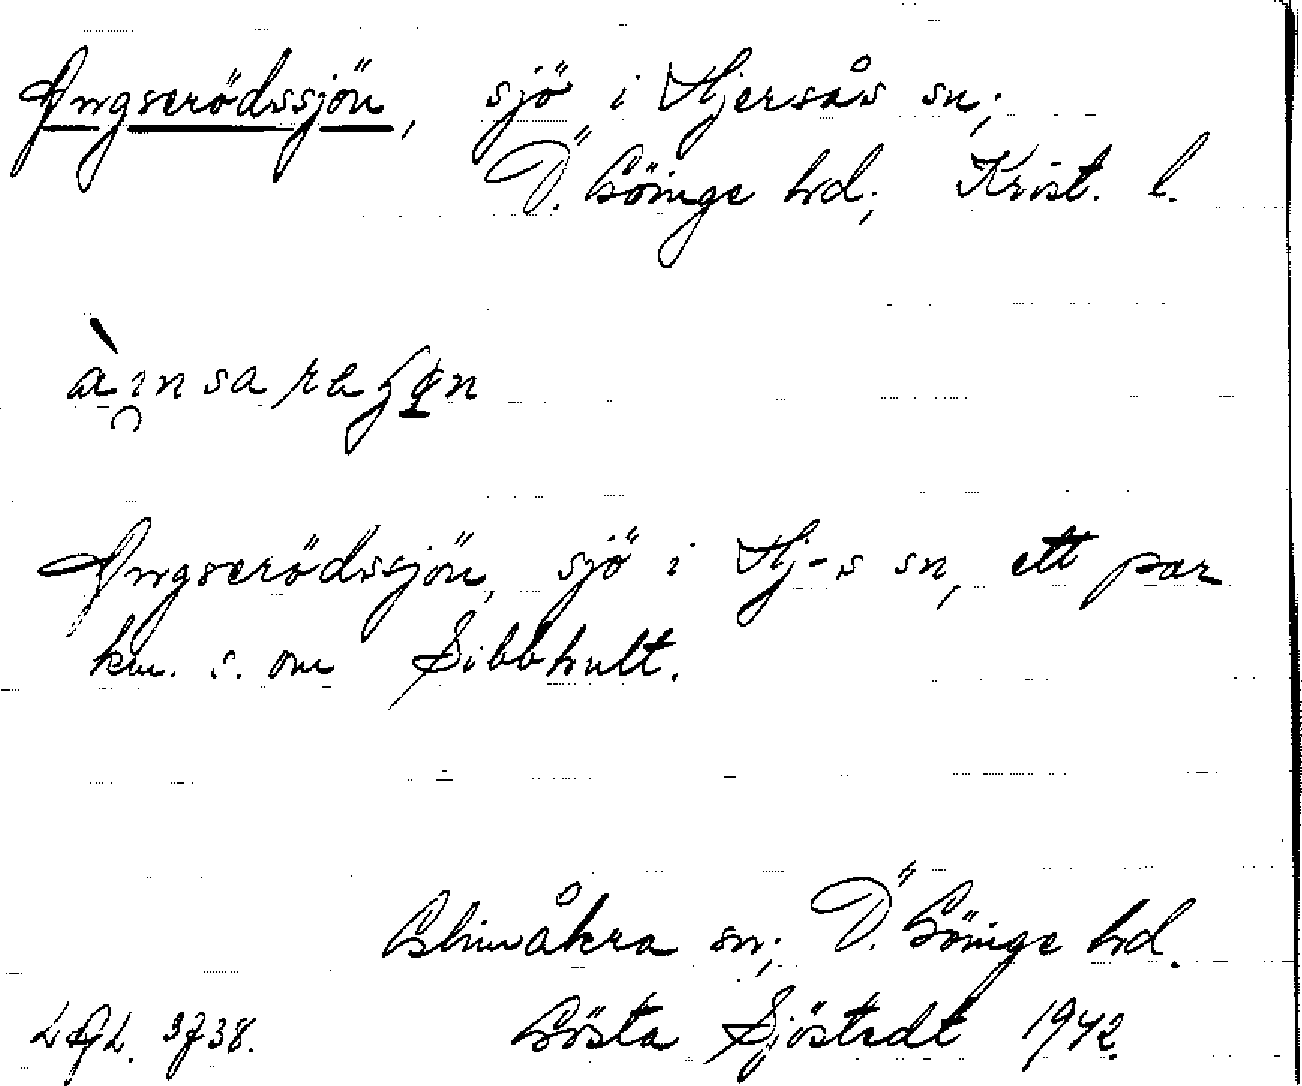 Yngserödssjön, sjö i Hjersås sn;
Ö. Göinge hd; Krist. l.
Yngserödssjön, sjö i Hj-s sn, ett par
km. s. om Sibbhult.
Glimåkra sn; Ö. Göinge hd.
LAL. 3738. Gösta Sjöstedt 1942.